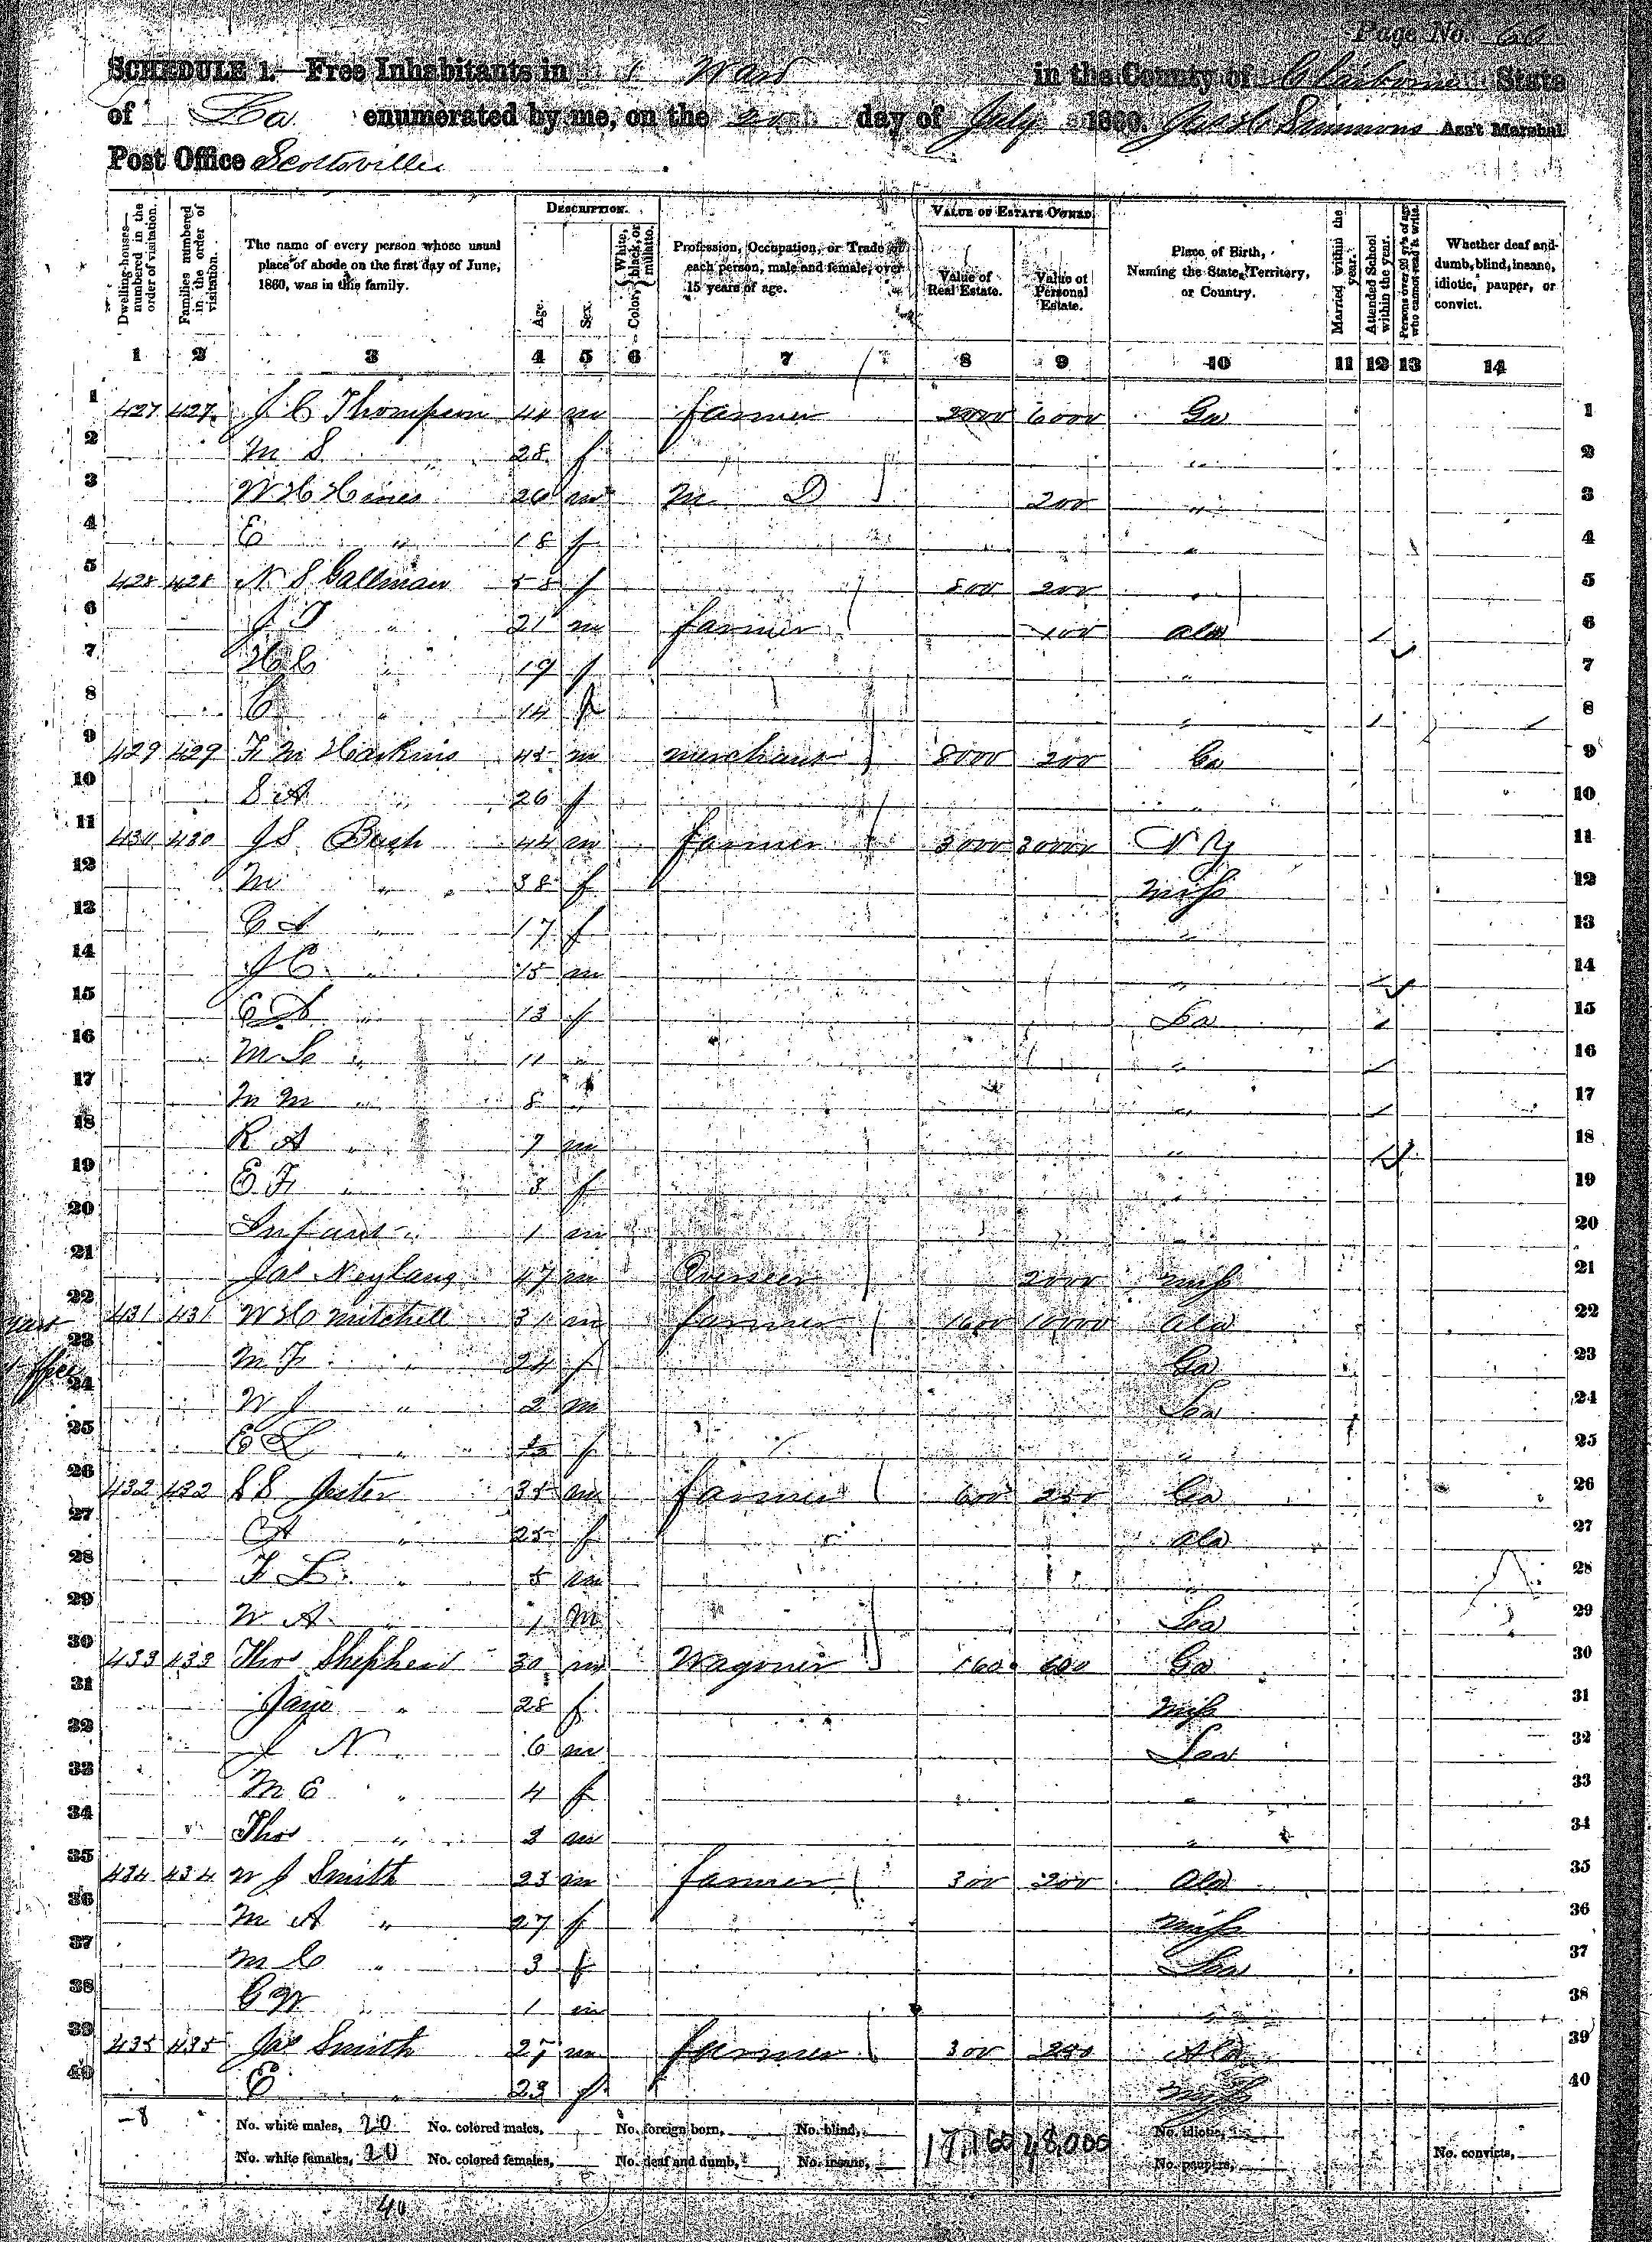 Page No. 60
SCHEDULE 1.—Free Inhabitants in 1 Ward in the County of Claiborne State
of La. enumerated by me, on the 20th day of July 1860. Jas C Simmons Ass't Marshal
Post Office Scottsville
DESCRIPTION. VALUE OF ESTATE OWNED.
Dwelling-houses—numbered in the order of visitation. Families numbered in the order of visitation. The name of every person whose usual place of abode on the first day of June, 1860, was in this family. Age. Sex. Color, White, black, or mulatto. Profession, Occupation, or Trade of each person, male and female, over 15 years of age. Value of Real Estate. Value of Personal Estate. Place of Birth, Naming the State, Territory, or Country. Married within the year. Attended School within the year. Persons over 20 y'rs of age who cannot read & write. Whether deaf and dumb, blind, insane, idiotic, pauper, or convict.
1 2 3 4 5 6 7 8 9 10 11 12 13 14
1 427 427 J C Thompson 44 m farmer 6000 Ga 1
2 M S " 28 f " 2
3 W H Hines 26 m M D 200 " 3
4 E " 18 f " 4
5 428 428 N S Gallman 58 f 800 200 " 5
6 J T " 21 m farmer 100 Ala 6
7 H C " 19 f " 7
8 C " 14 f " 8
9 429 429 F M Harkins 45 m merchant 8000 200 Ga 9
10 S A " 26 f " 10
11 430 430 J S Bush 44 m farmer 3000 30000 N Y 11
12 M " 38 f Miss 12
13 C A " 17 f " 13
14 J C " 15 m " 14
15 E D " 13 f La 15
16 M L " 11 " " 16
17 M M " 8 " " 17
18 R A " 7 m " 18
19 E F " 3 f " 19
20 Infant " 1 m " 20
21 Jas Neyland 47 m Overseer 2000 Miss 21
22 431 431 W H Mitchell 31 m farmer 1600 10000 Ala 22
23 M F " 24 f Ga 23
24 W J " 2 m La 24
25 E L " f " 25
26 432 432 S S Jeter 35 m farmer 600 250 Ga 26
27 A " 25 f Ala 27
28 F L " 5 m " 28
29 W A " 1 m La 29
30 433 433 Thos Shepherd 30 m Wagoner 160 600 Ga 30
31 Jane " 28 f Miss 31
32 J N " 6 m La 32
33 M E " 4 f " 33
34 Thos " 2 m " 34
35 434 434 W J Smith 23 m farmer 300 200 Ala 35
36 M A " 27 f Miss 36
37 M C " 3 f La 37
38 G W " 1 m " 38
39 435 435 Jas Smith 27 m farmer 300 250 Ala 39
40 E " 23 f Miss 40
—8 No. white males, 20 No. colored males, No. foreign born, No. blind, 17,160 48,000 No. idiotic,
No. white females, 20 No. colored females, No. deaf and dumb, No. insane, No. paupers, No. convicts,
40